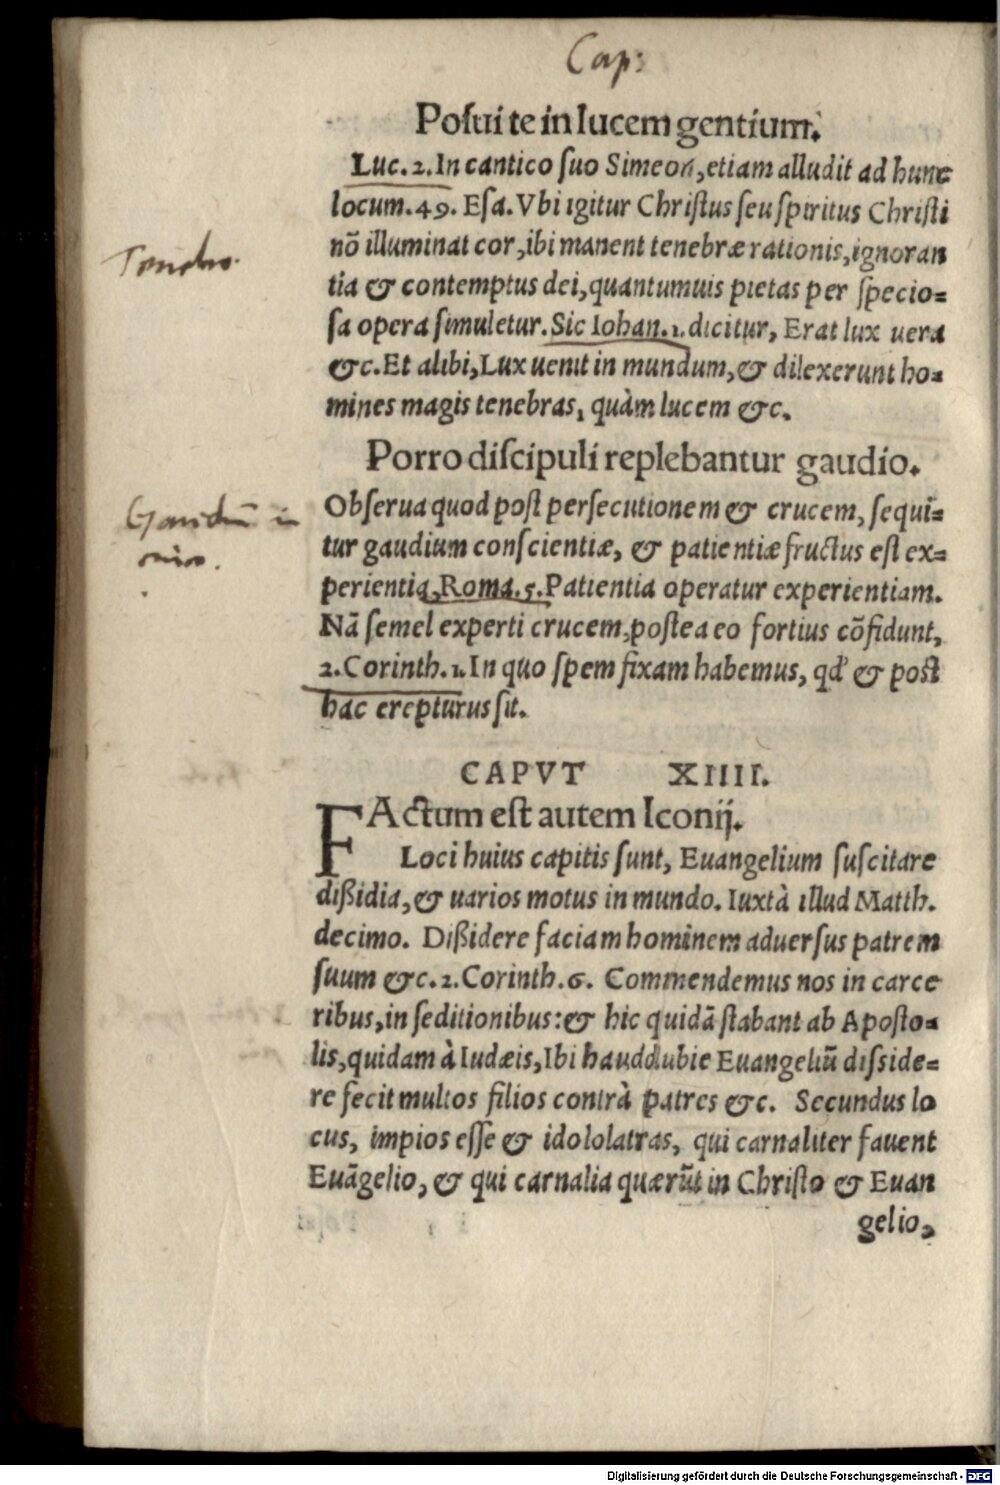 Cap:
Poſui te in lucem gentium.
Luc. 2. In cantico ſuo Simeon, etiam alludit ad hunc
locum. 49. Eſa. Vbi igitur Chriſtus ſeu ſpiritus Chriſti
nō illuminat cor, ibi manent tenebræ rationis, ignoran
tia & contemptus dei, quantumuis pietas per ſpecio=
ſa opera ſimuletur. Sic Iohan. 1. dicitur, Erat lux uera
&c. Et alibi, Lux uenit in mundum, & dilexerunt ho=
mines magis tenebras, quàm lucem &c.
Porro diſcipuli replebantur gaudio.
Obſerua quod poſt perſecutionem & crucem, ſequi=
tur gaudium conſcientiæ, & patientiæ fructus eſt ex=
perientia, Roma. 5. Patientia operatur experientiam.
Nā ſemel experti crucem, poſtea eo fortius cōfidunt,
2. Corinth. 1. In quo ſpem fixam habemus, qd' & poſt
hac erepturus ſit.
CAPVT XIIII.
FActum eſt autem Iconij.
Loci huius capitis ſunt, Euangelium ſuſcitare
dißidia, & uarios motus in mundo. Iuxtà illud Matth.
decimo. Dißidere faciam hominem aduerſus patrem
ſuum &c. 2. Corinth. 6. Commendemus nos in carce
ribus, in ſeditionibus: & hic quidā ſtabant ab Apoſto=
lis, quidam à Iudæis, Ibi hauddubie Euangeliū diſſide=
re fecit multos filios contrà patres &c. Secundus lo
cus, impios eſſe & idololatras, qui carnaliter fauent
Euāgelio, & qui carnalia quærūt in Chriſto & Euan
gelio,
Digitalisierung gefördert durch die Deutsche Forschungsgemeinschaft - DFG